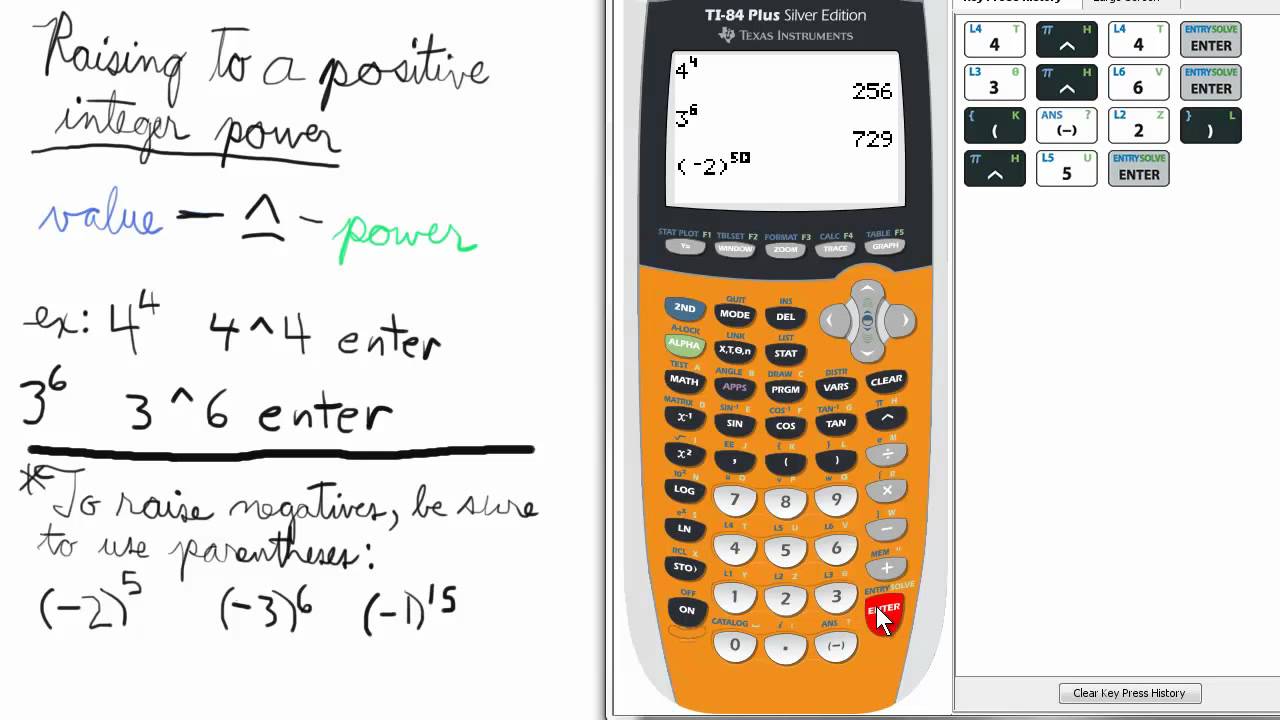 Raising to a positive
integer power
value - ^ - power
ex: 4^4 4^4 enter
3^6 3^6 enter
*To raise negatives, be sure
to use parentheses:
(-2)^5 (-3)^6 (-1)^15
TI-84 Plus Silver Edition
TEXAS INSTRUMENTS
4^4
256
3^6
729
(-2)^5
STAT PLOT F1 TBLSET F2 FORMAT F3 CALC F4 TABLE F5
Y= WINDOW ZOOM TRACE GRAPH
QUIT INS
2ND MODE DEL
A-LOCK LINK LIST
ALPHA X,T,Θ,n STAT
TEST A ANGLE B DRAW C DISTR
MATH APPS PRGM VARS CLEAR
MATRIX D SIN⁻¹ E COS⁻¹ F TAN⁻¹ G π H
X⁻¹ SIN COS TAN ^
√ I EE J { K } L e M
X² , ( ) ÷
10ˣ N u O v P w Q [ R
LOG 7 8 9 ×
eˣ S L4 T L5 U L6 V ] W
LN 4 5 6 −
RCL X L1 Y L2 Z L3 θ MEM "
STO› 1 2 3 +
OFF CATALOG i ANS ? ENTRY SOLVE
ON 0 . (−) ENTER
Key Press History
L4 T π H L4 T ENTRY SOLVE
4 ^ 4 ENTER
L3 θ π H L6 V ENTRY SOLVE
3 ^ 6 ENTER
{ K ANS ? L2 Z } L
( (−) 2 )
π H L5 U ENTRY SOLVE
^ 5 ENTER
Clear Key Press History